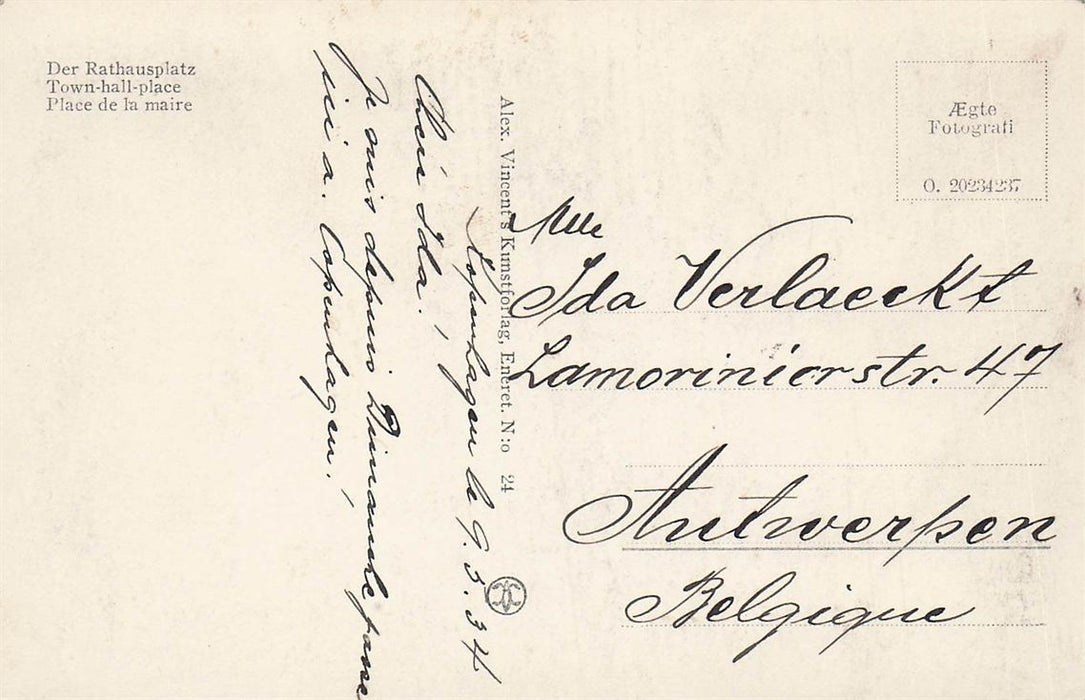 Der Rathausplatz
Town-hall-place
Place de la maire
Ægte
Fotografi
O. 20234237
Alex. Vincent's Kunstforlag, Eneret. N:o 24
Copenhagen le 9.5.34
Chère Ida!
Je suis depuis Dimanche passé
ici a. Copenhagen!
Mlle
Ida Verlaeckt
Lamorinierstr. 47
Antwerpen
Belgique